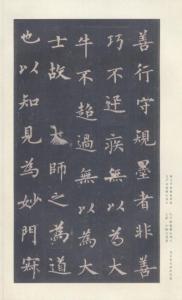 善行守規墨者非善
巧不逆疾無以為大
牛不超過無以為大
士故大師之為道
也以知見為妙門寂